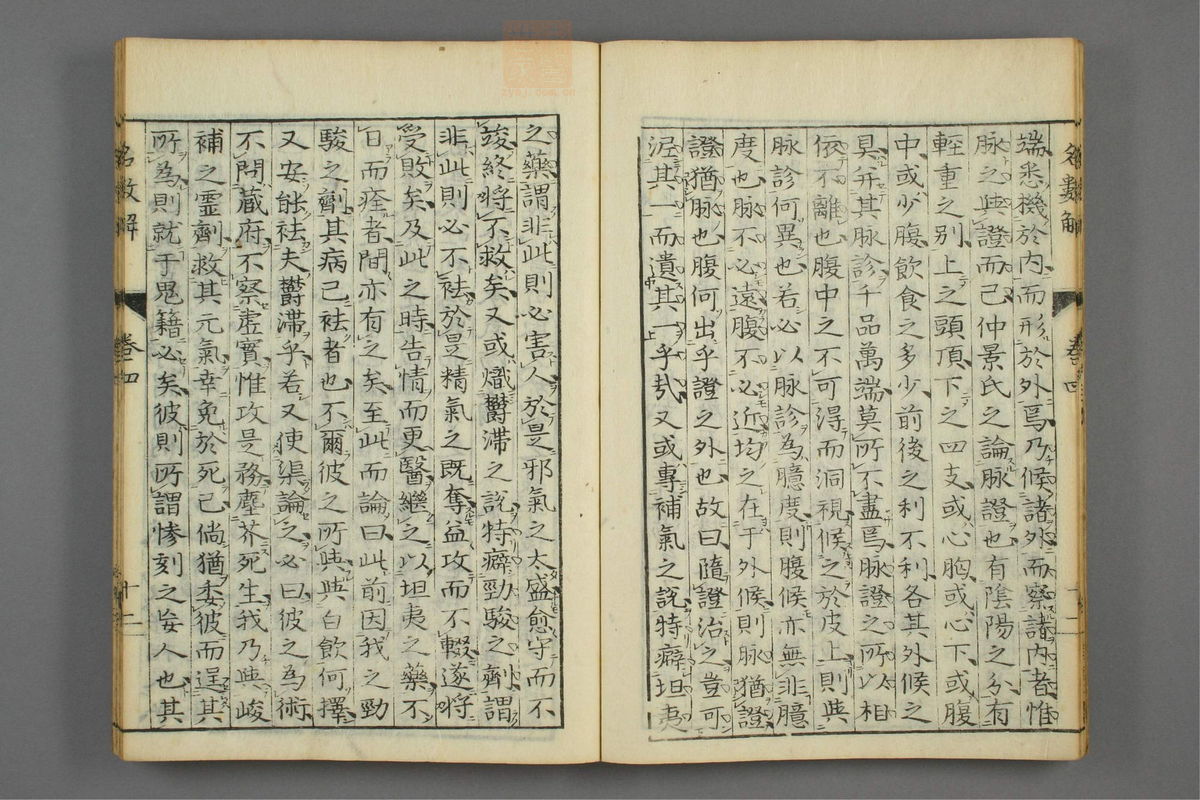 端悉機於內而形於外焉乃候諸外而察諸內者惟
脉之與證而已仲景氏之論脉證也有陰陽之分有
輕重之別上之頭頂下之四支或心胸或心下或腹
中或少腹飲食之多少前後之利不利各其外候之
具弁其脉診千品萬端莫所不盡焉脉證之所以相
依不離也腹中之不可得而洞視候之於皮上則與
脉診何異也若必以脉診為臆度則腹候亦無非臆
度也脉不必遠腹不必近均之在于外候則脉猶證
證猶脉也腹何出乎證之外也故曰隨證治之豈可
泥其一而遺其一乎㢤又或專補氣之說特癖坦夷
之藥謂非此則必害人於是邪氣之太盛愈守而不
竣終將不救矣又或熾欝滞之說特癖勁駿之劑謂
非此則必不祛於是精氣之既奪益攻而不輟遂將
受敗矣及此之時告情而更醫繼之以坦夷之藥不
日而痊者間亦有之矣至此而論曰此前因我之勁
駿之劑其病已祛者也不爾彼之所與與白飲何擇
又安能祛夫欝滯乎若又使渠論之必曰彼之為術
不問藏府不察虛實惟攻是務塵芥死生我乃與峻
補之霊劑救其元氣幸免於死已倘猶委彼而逞其
所為則就于鬼籍必矣彼則所謂慘刻之妄人也其
名數解
卷四
十二
名數解
卷四